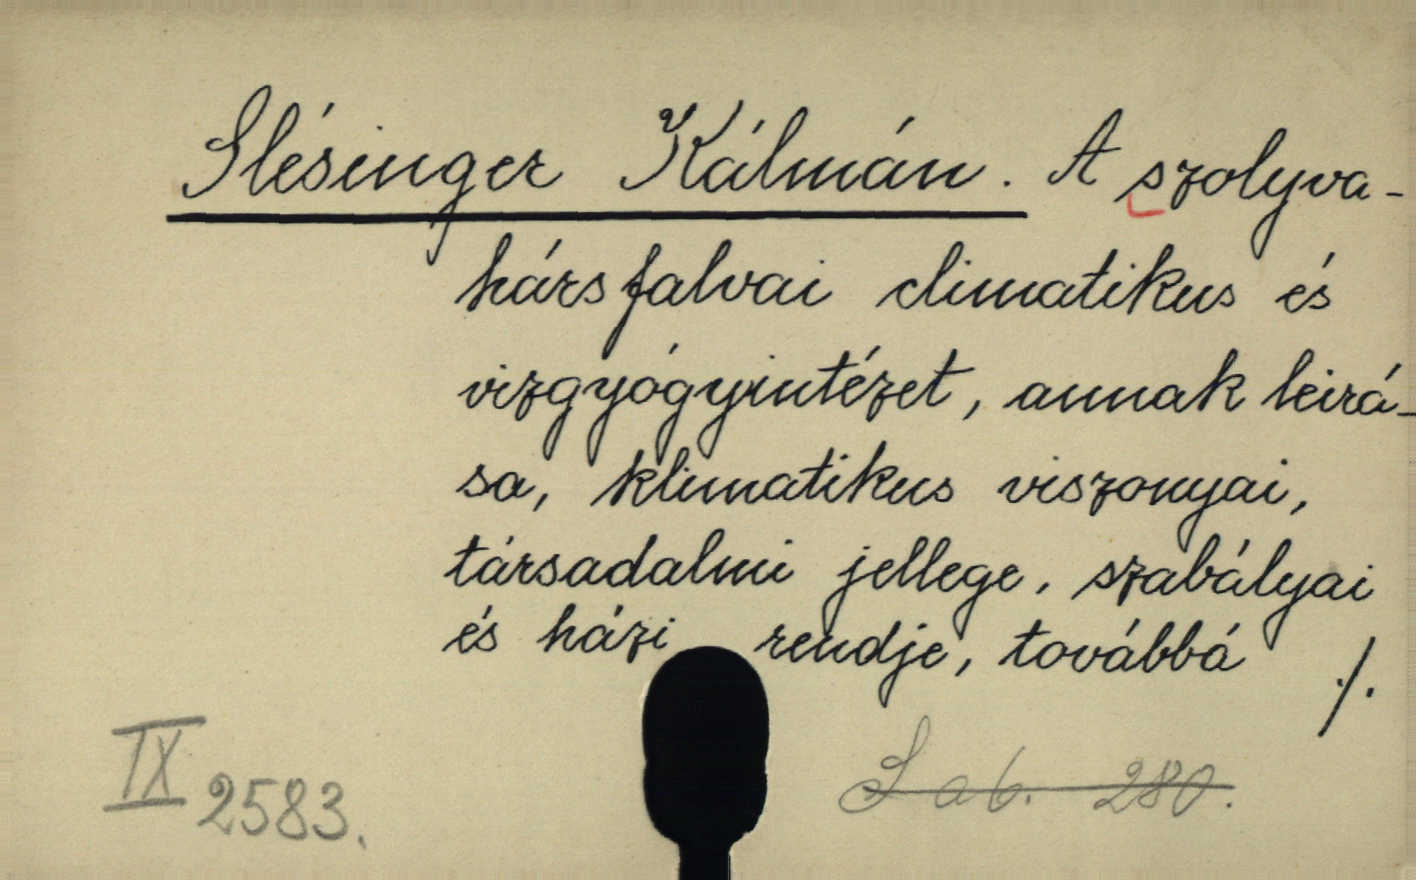 Slésinger Kálmán. A szolyva-
hársfalvai climatikus és
vizgyógyintézet, annak leirá-
sa, klimatikus viszonyai,
társadalmi jellege, szabályai
és házi rendje, továbbá ./.
IX 2583.
Lab. 280.